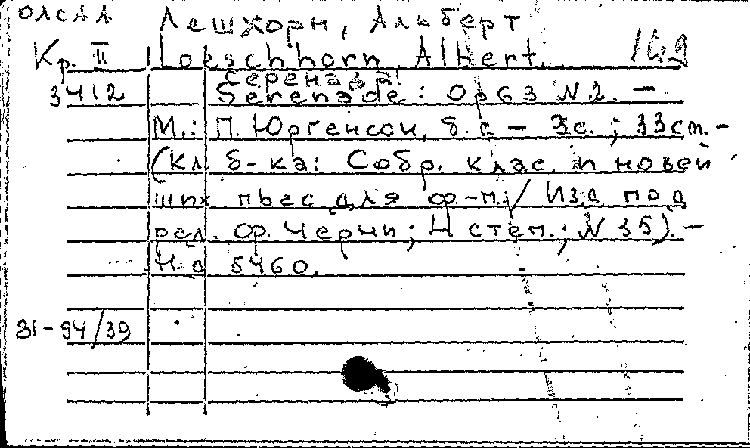 ОЛСАА Лешхорн, Альберт
Кр. II Loeschhorn, Albert. 142
Серенада.
3412 Serenade: Op 63 N 2. —
М.: П. Юргенсон, б. г. — 3с.; 33см. —
(Кл. б-ка: Собр. клас. и новей
ших пьес для ф-п. / Изд. под
ред. Ф. Черни; II степ.; N 35). —
Н. д 5460.
31-94/39